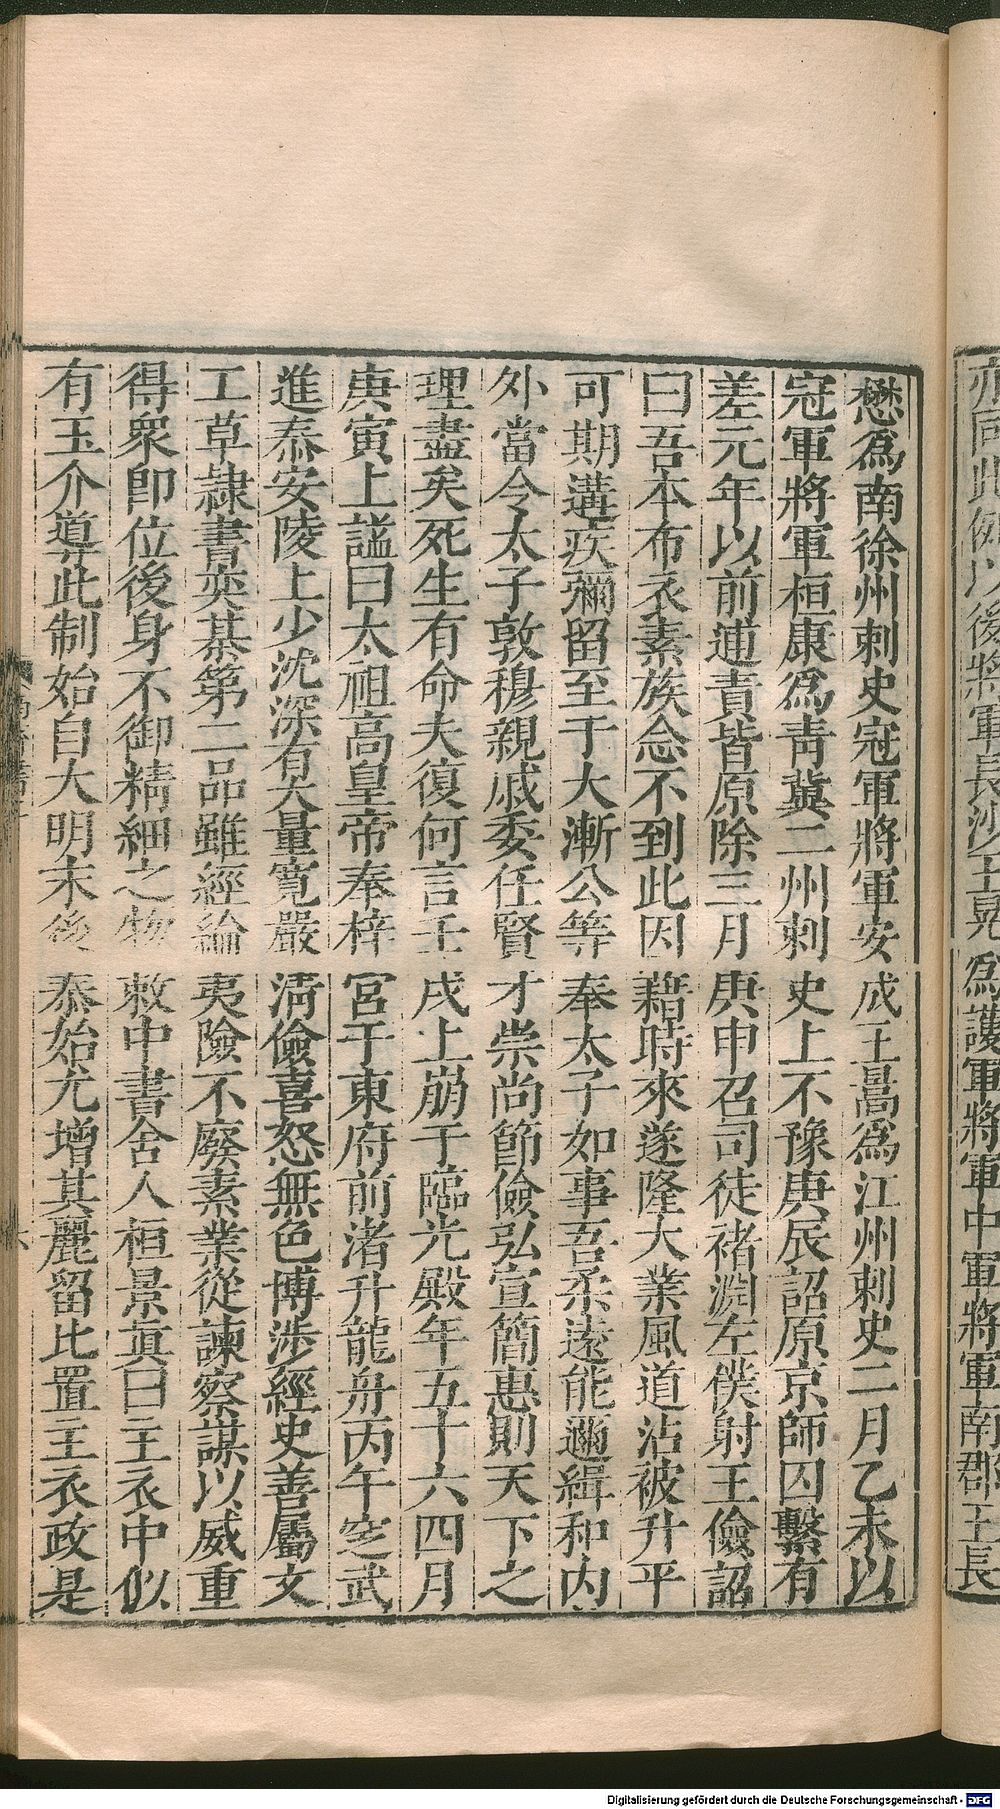 懋爲南徐州刺史冠軍將軍安成王暠爲江州刺史二月乙未以
冠軍將軍桓康爲靑冀二州刺史上不豫庚辰詔原京師囚繫有
差元年以前逋責皆原除三月庚申召司徒褚淵左僕射王儉詔
曰吾本布衣素族念不到此因藉時來遂隆大業風道沾被升平
可期遘疾彌留至于大漸公等奉太子如事吾柔遠能邇緝和內
外當令太子敦穆親戚委任賢才崇尚節儉弘宣簡惠則天下之
理盡矣死生有命夫復何言壬戌上崩于臨光殿年五十六四月
庚寅上諡曰太祖高皇帝奉梓宮于東府前渚升龍舟丙午窆武
進泰安陵上少沈深有大量寬嚴淸儉喜怒無色博涉經史善屬文
工草隸書奕棊第二品雖經綸夷險不廢素業從諫察謀以威重
得衆卽位後身不御精細之物敕中書舍人桓景眞曰主衣中似
有玉介導此制始自大明末後泰始尤增其麗留此置主衣政是
亦同此例以後將軍長沙王晃爲護軍將軍中軍將軍南郡王長
Digitalisierung gefördert durch die Deutsche Forschungsgemeinschaft - DFG